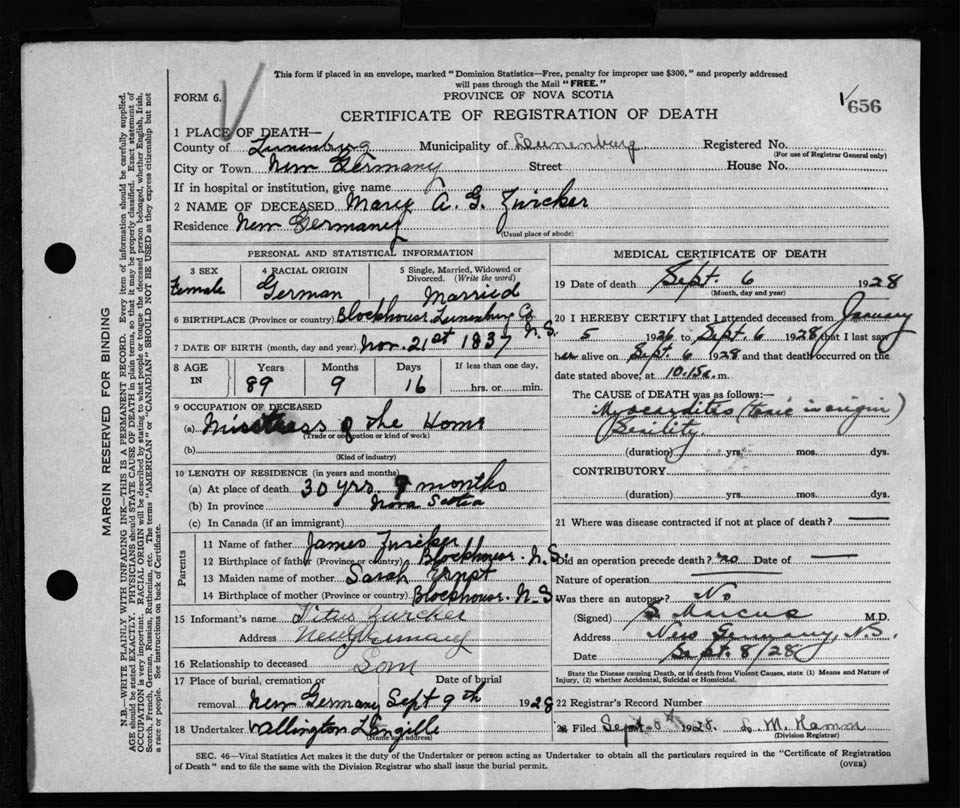 This form if placed in an envelope, marked "Dominion Statistics—Free, penalty for improper use $300," and properly addressed
will pass through the Mail "FREE."
FORM 6.
PROVINCE OF NOVA SCOTIA
656
CERTIFICATE OF REGISTRATION OF DEATH
1 PLACE OF DEATH—
County of Lunenburg Municipality of Lunenburg Registered No.
(For use of Registrar General only)
City or Town New Germany Street House No.
If in hospital or institution, give name
2 NAME OF DECEASED Mary A. G. Zwicker
Residence New Germany
(Usual place of abode)
PERSONAL AND STATISTICAL INFORMATION
3 SEX 4 RACIAL ORIGIN 5 Single, Married, Widowed or
Divorced. (Write the word)
Female German Married
6 BIRTHPLACE (Province or country) Blockhouse Lunenburg Co N.S.
7 DATE OF BIRTH (month, day and year) Nov. 21st 1837
8 AGE IN Years Months Days If less than one day,
89 9 16 hrs. or min.
9 OCCUPATION OF DECEASED
(a) Mistress of the Home
(Trade or occupation or kind of work)
(b)
(Kind of industry)
10 LENGTH OF RESIDENCE (in years and months)
(a) At place of death 30 yrs 9 months
(b) In province Nova Scotia
(c) In Canada (if an immigrant)
Parents
11 Name of father James Zwicker
12 Birthplace of father (Province or country) Blockhouse. N.S.
13 Maiden name of mother Sarah Ernst
14 Birthplace of mother (Province or country) Blockhouse. N.S.
15 Informant's name Titus Zwicker
Address New Germany
16 Relationship to deceased Son
17 Place of burial, cremation or removal Date of burial
New Germany Sept 9th 1928
18 Undertaker Wallington Langille
(Name and address)
MEDICAL CERTIFICATE OF DEATH
19 Date of death Sept. 6 1928
(Month, day and year)
20 I HEREBY CERTIFY that I attended deceased from January
5 1926 to Sept. 6 1928, that I last saw
her alive on Sept. 6 1928 and that death occurred on
date stated above, at 10.15a. m.
The CAUSE of DEATH was as follows:—
Myocarditis (toxic in origin)
Senility.
(duration) yrs. mos. dys.
CONTRIBUTORY
(duration) yrs. mos. dys.
21 Where was disease contracted if not at place of death?
Did an operation precede death? no Date of
Nature of operation
Was there an autopsy? No
(Signed) S. Marcus M.D.
Address New Germany, N.S.
Date Sept. 8/28
State the Disease causing Death, or in death from Violent Causes, state (1) Means and Nature of
Injury, (2) whether Accidental, Suicidal or Homicidal.
22 Registrar's Record Number
Filed Sept. 8th 1928. L. M. Hamm
(Division Registrar)
SEC. 46—Vital Statistics Act makes it the duty of the Undertaker or person acting as Undertaker to obtain all the particulars required in the "Certificate of Registration
of Death" and to file the same with the Division Registrar who shall issue the burial permit.
(OVER)
MARGIN RESERVED FOR BINDING
N.B.—WRITE PLAINLY WITH UNFADING INK—THIS IS A PERMANENT RECORD. Every item of information should be carefully supplied.
AGE should be stated EXACTLY. PHYSICIANS should STATE CAUSE OF DEATH in plain terms, so that it may be properly classified. Exact statement of
OCCUPATION is very important. RACIAL ORIGIN will be described by stating to what people or tongue the deceased person belonged, whether English, Irish,
Scotch, French, German, Russian, Ruthenian, etc. The terms "AMERICAN" or "CANADIAN" SHOULD NOT BE USED as they express citizenship but not
a race or people. See instructions on back of Certificate.